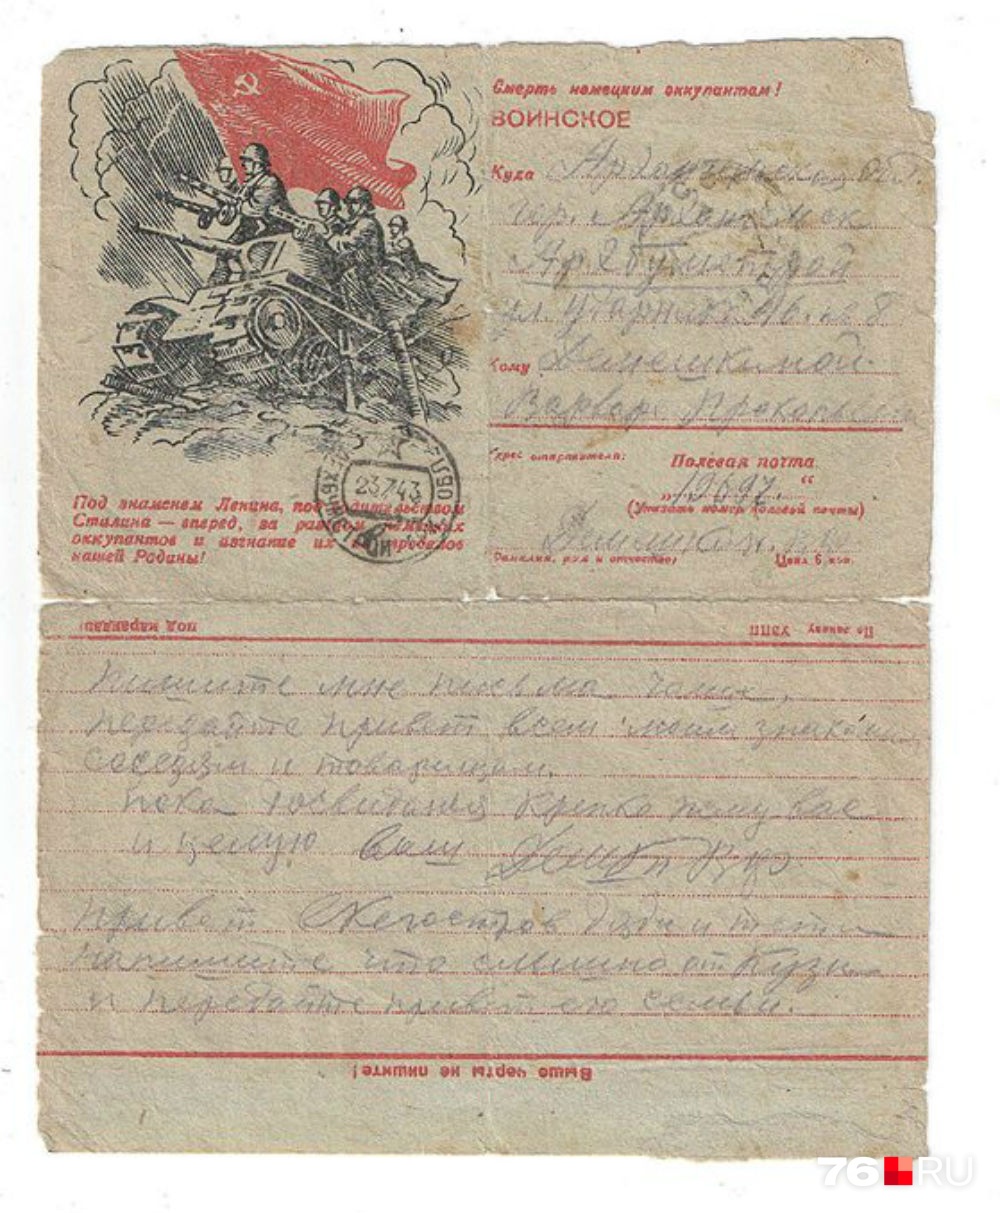 Смерть немецким оккупантам!
ВОИНСКОЕ
Куда Архангельск
гор. Архангельск
ул. 8
Кому
Варвар Прокопьевн
Адрес отправителя: Полевая почта
(Указать номер полевой почты)
Фамилия, имя и отчество) Цена 6 коп.
23.7.43
Под знаменем Ленина, под водительством
Сталина — вперед, за разгром немецких
оккупантов и изгнание их из пределов
нашей Родины!
По заказу УЗПП под карандаш
Пишите мне письма чаще,
передайте привет всем моим знаком
соседям и товарищам.
Пока досвидания крепко жму вас
и целую Ваш
Привет дяди и тети
напишите что слышно от Кузи
и передайте привет его семьи.
Выше черты не пишите!
76.RU